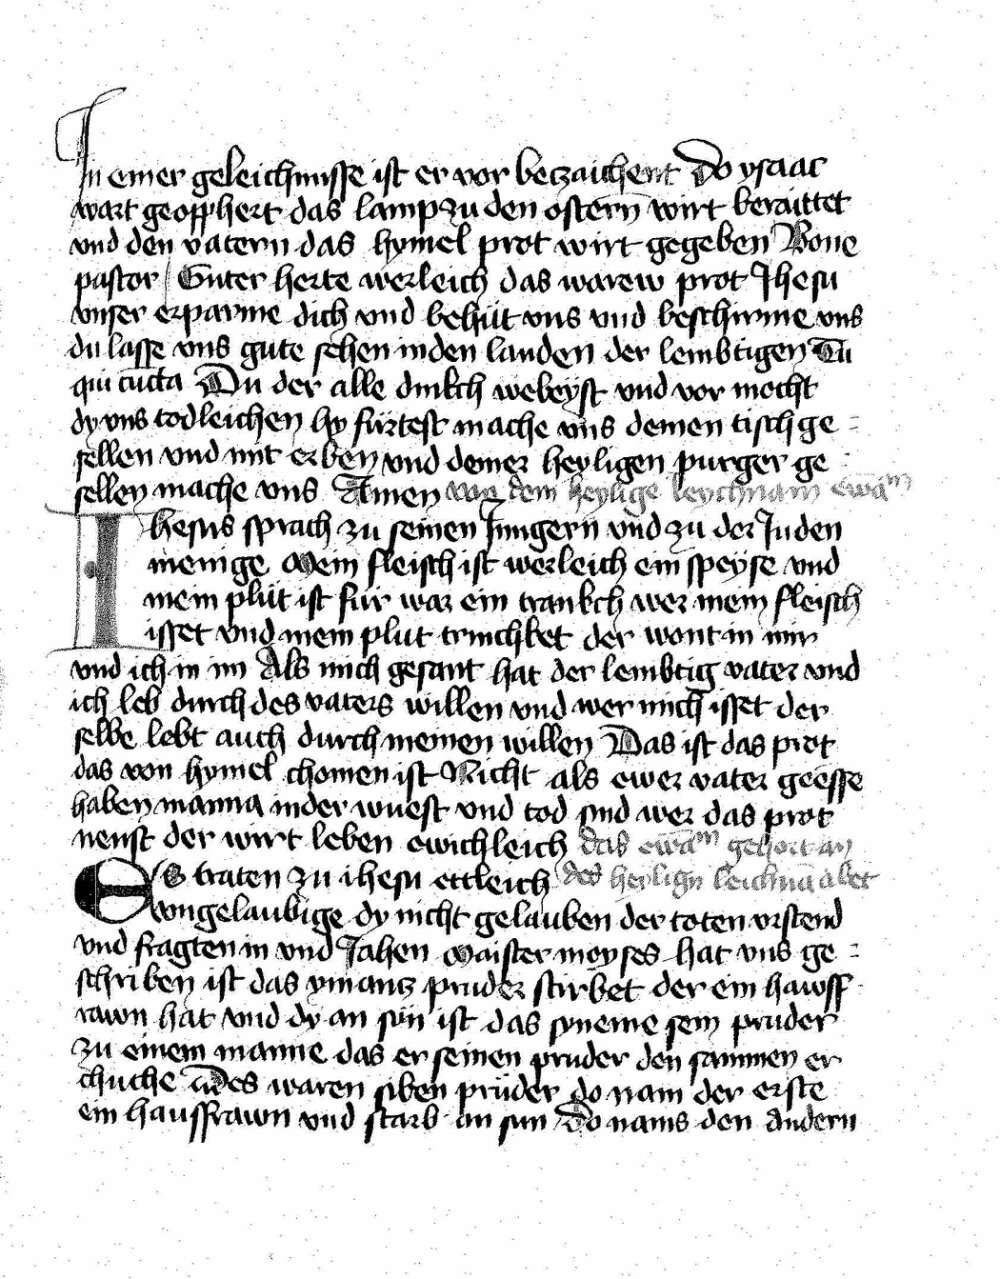 In einer geleichnusse ist er vor betzaichent Do ysaac
wart geopphert das lamp zu den ostern wirt beraittet
vnd den vatern das hymel prot wirt gegeben Bone
pastor Guter herte werleich das warew prot Jhesu
vnser erparme dich vnd behüt vns vnd beschirme vns
du lasse vns gute sehen in den landen der lembtigen Tu
qui cūcta Du der alle dinkch webeyst vnd vor mocht
dy vns todleichen hy fürtest mache vns deinen tisch ge
sellen vnd mit erben vnd deiner heyligen purger ge
sellen mache vns Amen von dem heylige leychnam ewāᵐ
Ihesus sprach zu seinen Jungern vnd zu der Juden
menige Mein fleisch ist werleich ein speyse vnd
mein plüt ist für war ein trankch wer mein fleisch
isset vnd mein plut trinchket der wont in mir
vnd ich in im Als mich gesant hat der lembtig vater vnd
ich leb durch des vaters willen vnd wer mich isset der
selbe lebt auch durch meinen willen Das ist das prot
das von hymel chomen ist Nicht als ewer vater geesse
haben manna in der wuest vnd tod sind wer das prot
neust der wirt leben ewichleich das ewāᵐ gehort an
Es traten zu ihesu ettleich des heylign leichnā abet
vngelaubige dy nicht gelauben der toten vrstend
vnd fragten in vnd Jahen Maister moyses hat vns ge
schriben ist das ymantz pruder stirbet der ein hawsf
rawn hat vnd dy an sün ist das syneme sein pruder
zu einem manne das er seinen pruder den sammen er
chuche Nv des waren siben prüder do nam der erste
ein hausfrawn vnd starb an sun Do nams den andern